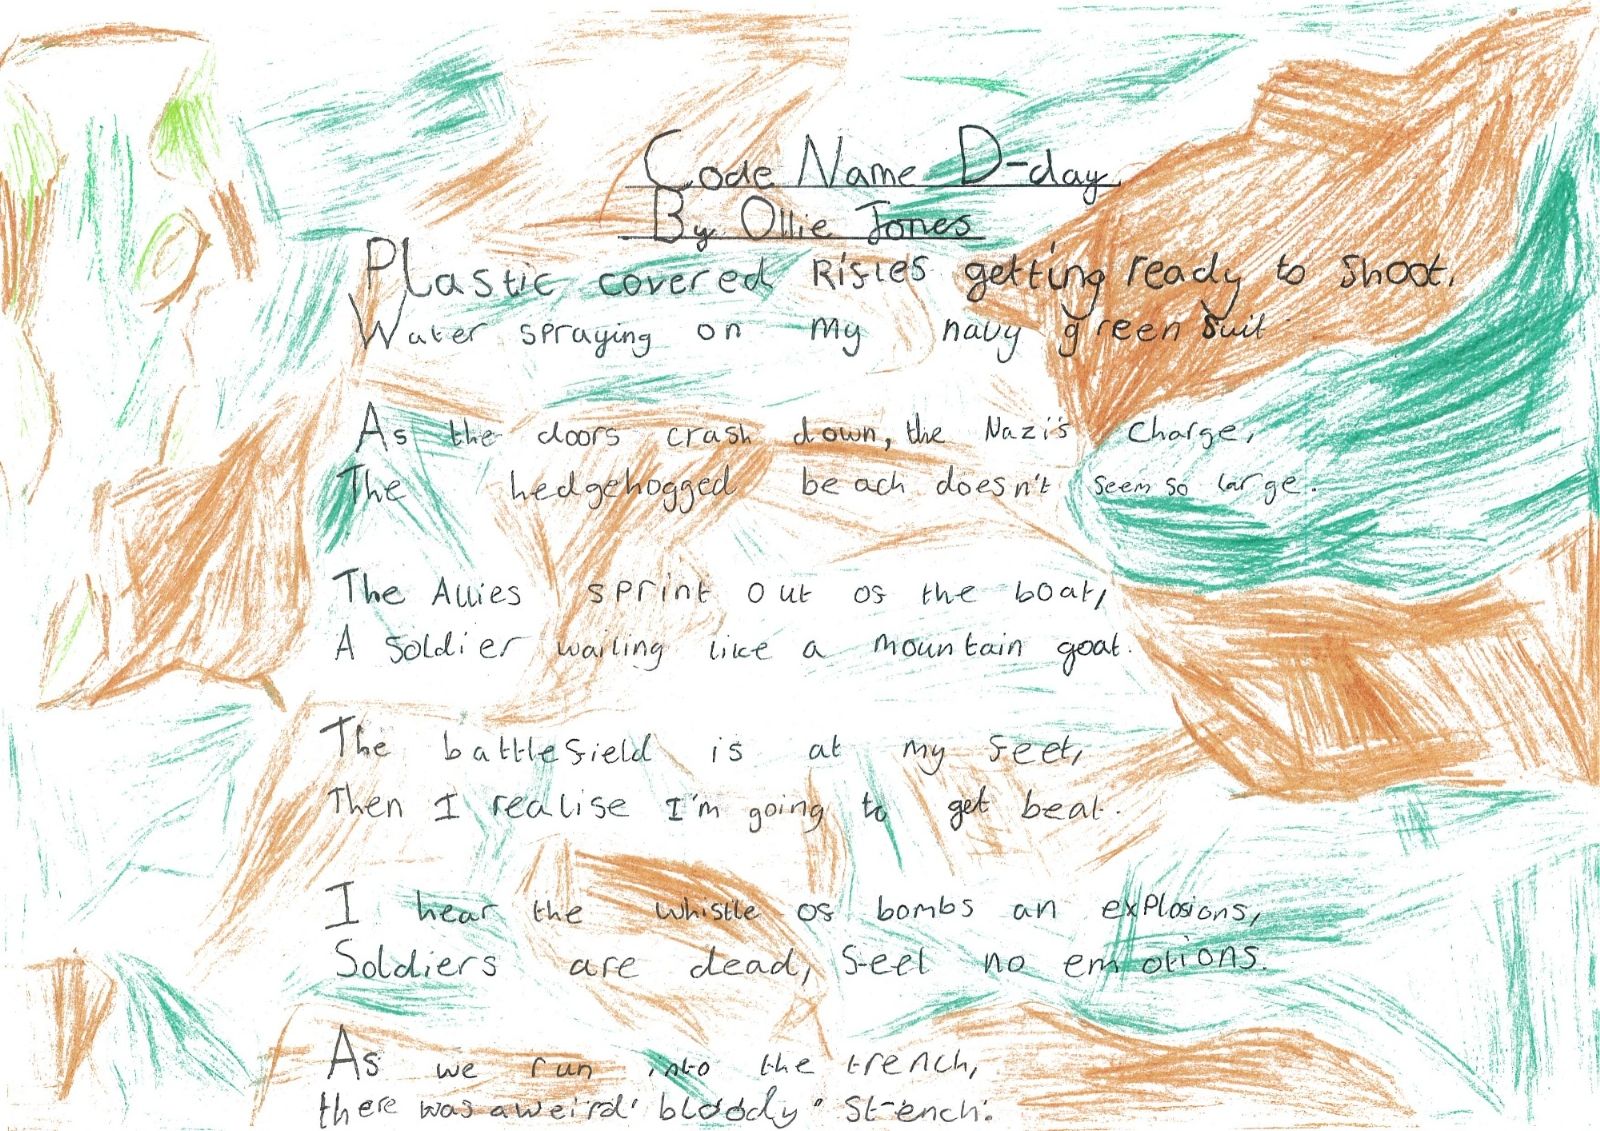 Code Name D-day
By Ollie Jones
Plastic covered Rifles getting ready to shoot.
Water spraying on my navy green suit
As the doors crash down, the Nazi's charge,
The hedgehogged beach doesn't seem so large.
The Allies sprint out of the boat,
A soldier wailing like a mountain goat.
The battlefield is at my feet,
Then I realise I'm going to get beat.
I hear the whistle of bombs an explosions,
Soldiers are dead, feel no emotions.
As we run into the trench,
there was a weird 'bloody' stench.